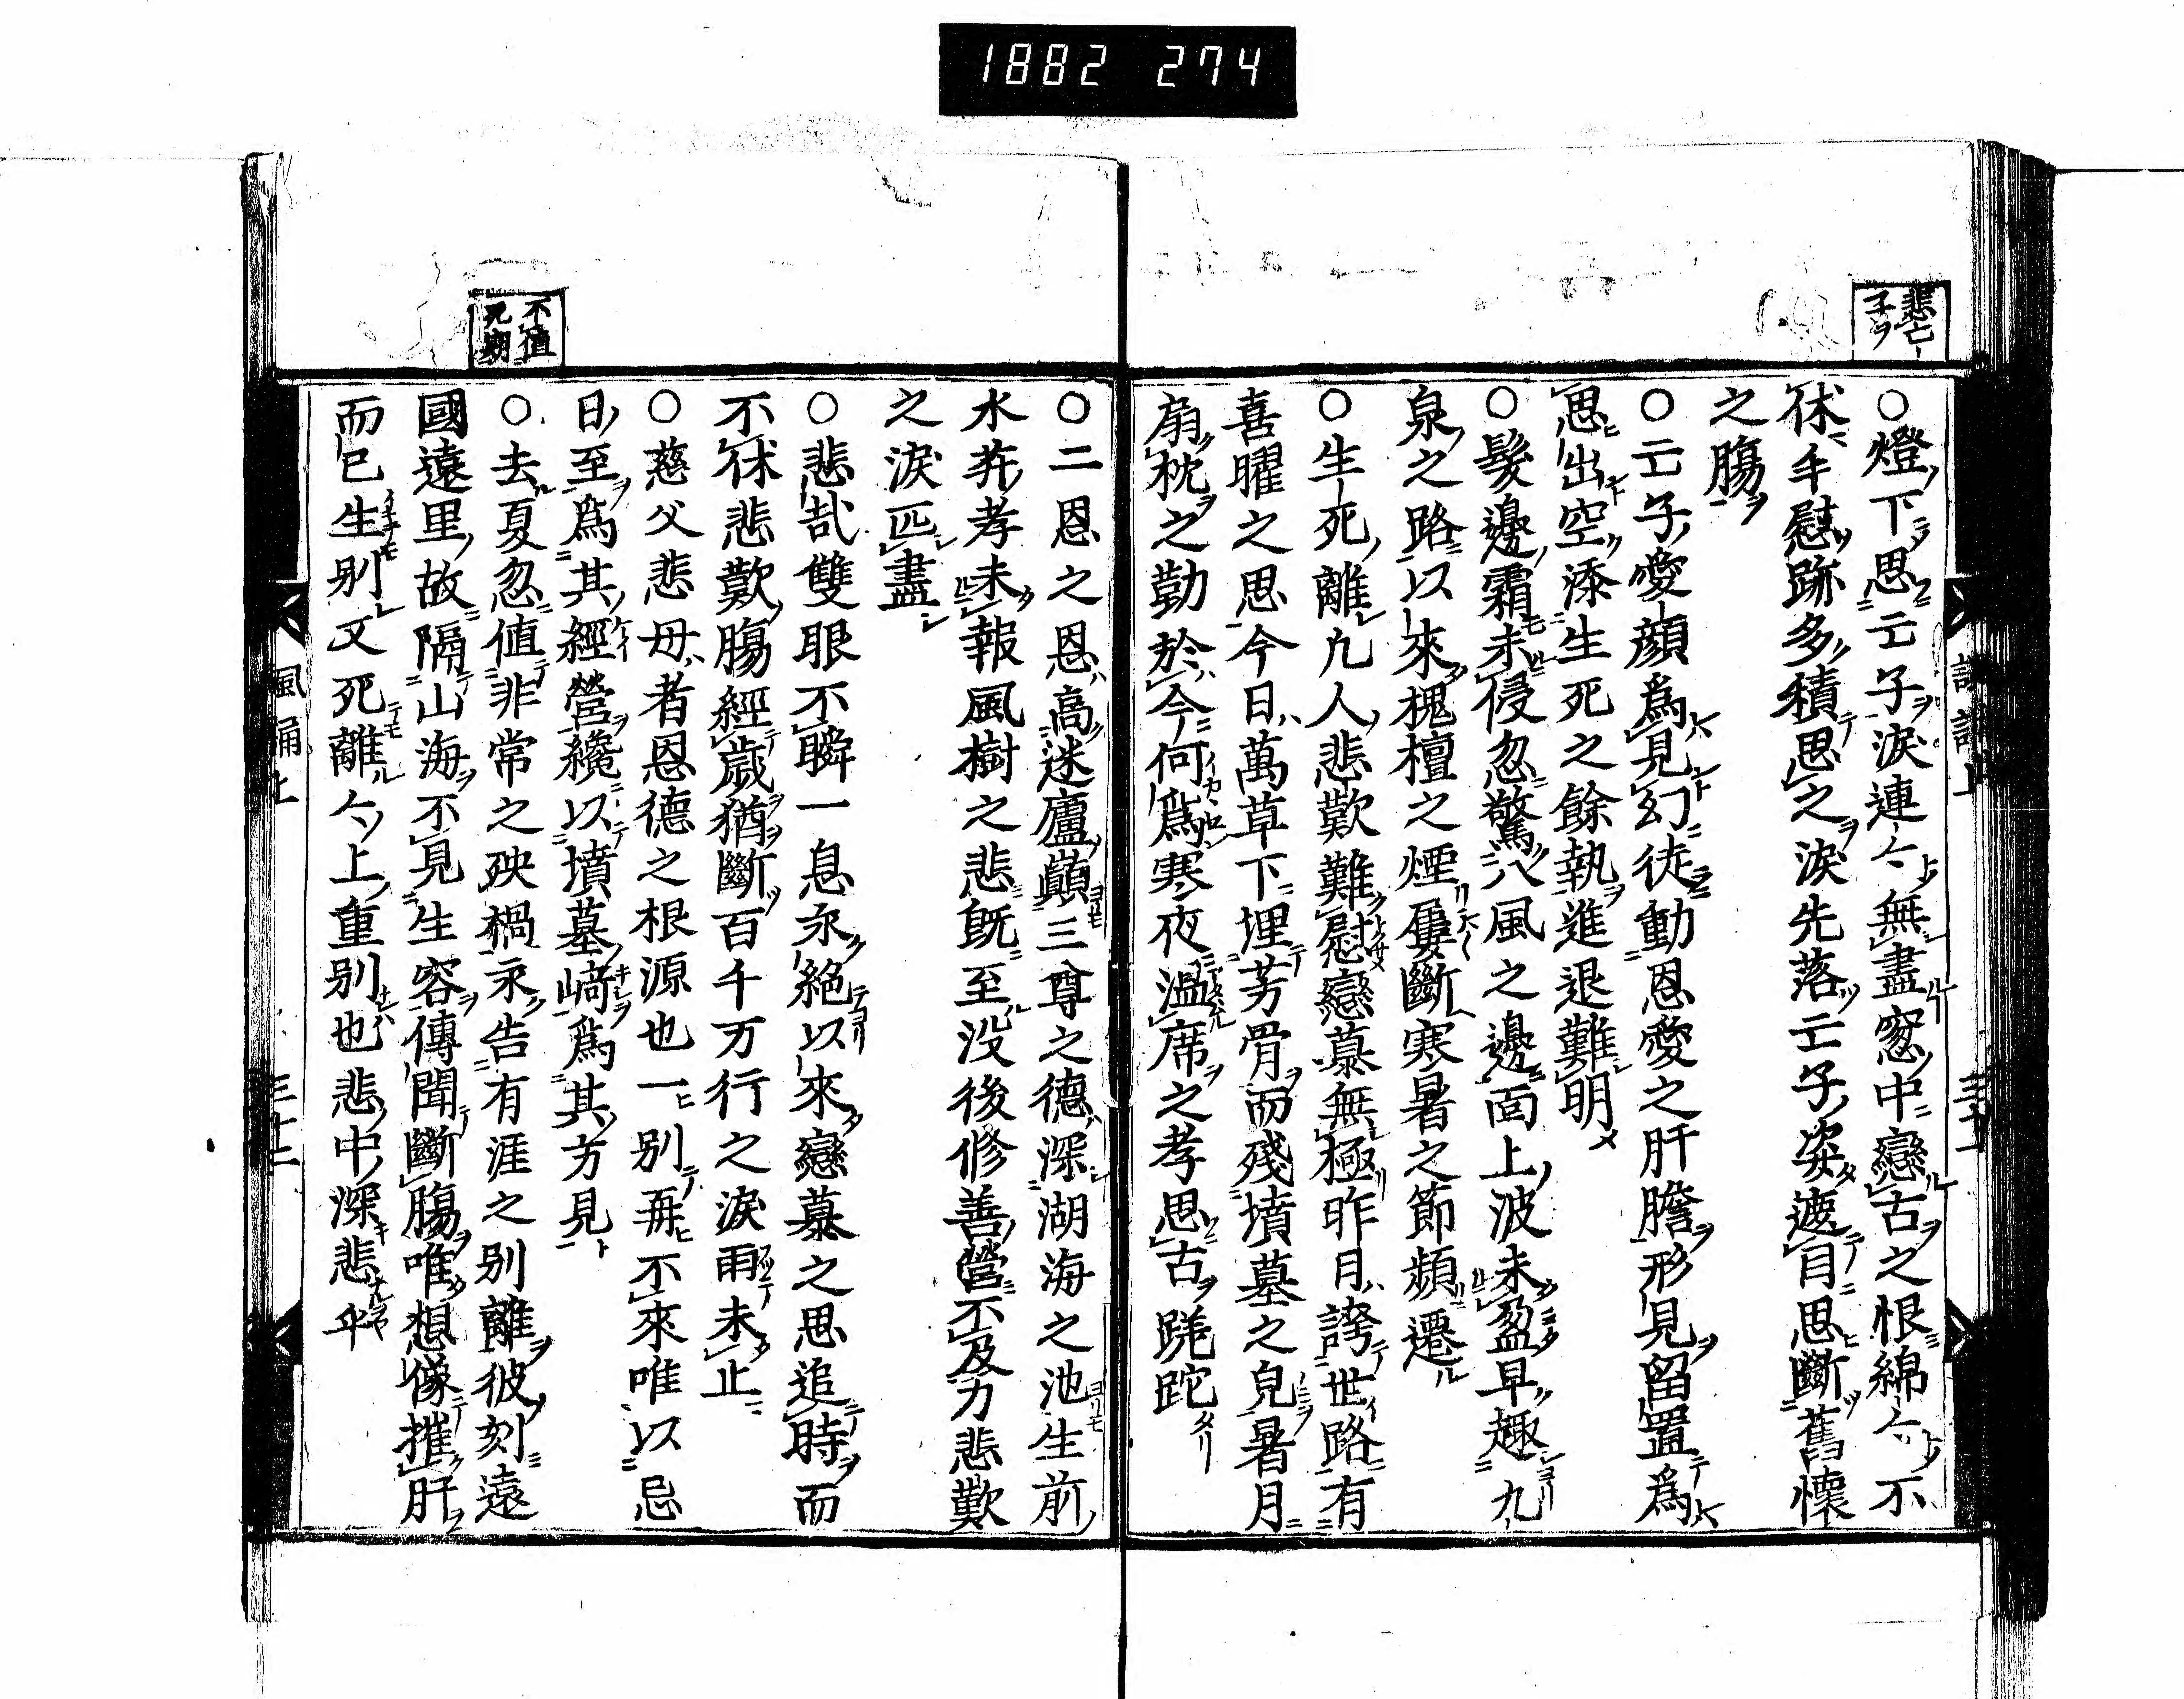 1882 274
悲亡
子ヲ
○燈下思亡子淚連〻無盡窓中戀古之恨綿〻不
休手慰跡多積思之淚先落亡子姿遮目思斷舊懷
之腸
○亡子愛顔爲見幻徒動恩愛之肝膽形見留置爲
思出空添生死之餘執進退難明
○鬢邊霜未侵忽驚八風之邊面上波未盈早趣九
泉之路以來槐檀之煙屢斷寒暑之節頻遷
○生死離凡人悲歎難慰戀慕無極昨日誇世路有
喜曜之思今日萬草下埋芳骨而殘墳墓之皃暑月
扇枕之勤於今何爲寒夜溫席之孝思古蹉跎
○二恩之恩高迷廬巓三尊之德深湖海之池生前
水菽孝未報風樹之悲既至没後修善營不及力悲歎
之淚匹盡
○悲哉雙眼不瞬一息永絕以來戀慕之思追時而
不休悲歎腸經歲猶斷百千万行之淚雨未止
○慈父悲母者恩德之根源也一別再不來唯以忌
日至爲其經營纔以墳墓﨑爲其方見
○去夏忽值非常之殃禍永告有涯之別離彼刻遠
國遠里故隔山海不見生容傳聞斷腸唯想像摧肝
而已生別又死離〻上重別也悲中深悲乎
不值
死期
風誦上
三十二